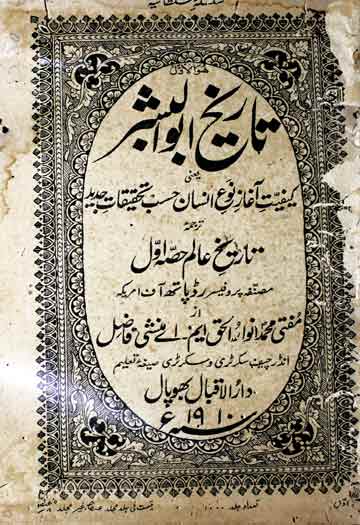 ھوالاول
تاریخ ابوالبشر
یعنی
کیفیت آغاز نوع انسان حسب تحقیقات جدید
ترجمہ
تاریخ عالم حصہ اول
مصنفہ پروفیسر رڈپاتھ آف امریکہ
از
مفتی محمد انوار الحق ایم اے منشی فاضل
انڈر چیف سکرٹری و سکرٹری صیغہ تعلیم
دار الاقبال بھوپال
سنہ ۱۹۱۰ ع
تعداد جلد ۱۰۰۰ قیمت فی جلد مجلد